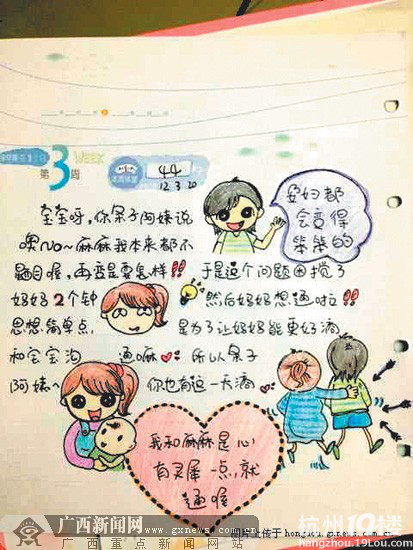 第3周
WEEK
44
12 3.20
孕妇都
会变得
笨笨的
宝宝呀，你呆子阿姨说
噢no~麻麻我本来都不
聪目喔，再歪是要怎样!! 于是这个问题困搅了
妈妈2个钟 然后妈妈想通啦!!
思想简单点， 是为了让妈妈能更好滴
和宝宝沟通嘛 所以呆子
阿姨~ 你也有这一天滴
我和麻麻是心
有灵犀一点，就
通喔
广西新闻网
www.gxnews.com.cn
广西重点新闻网站
杭州19楼
hangzhou.19lou.com